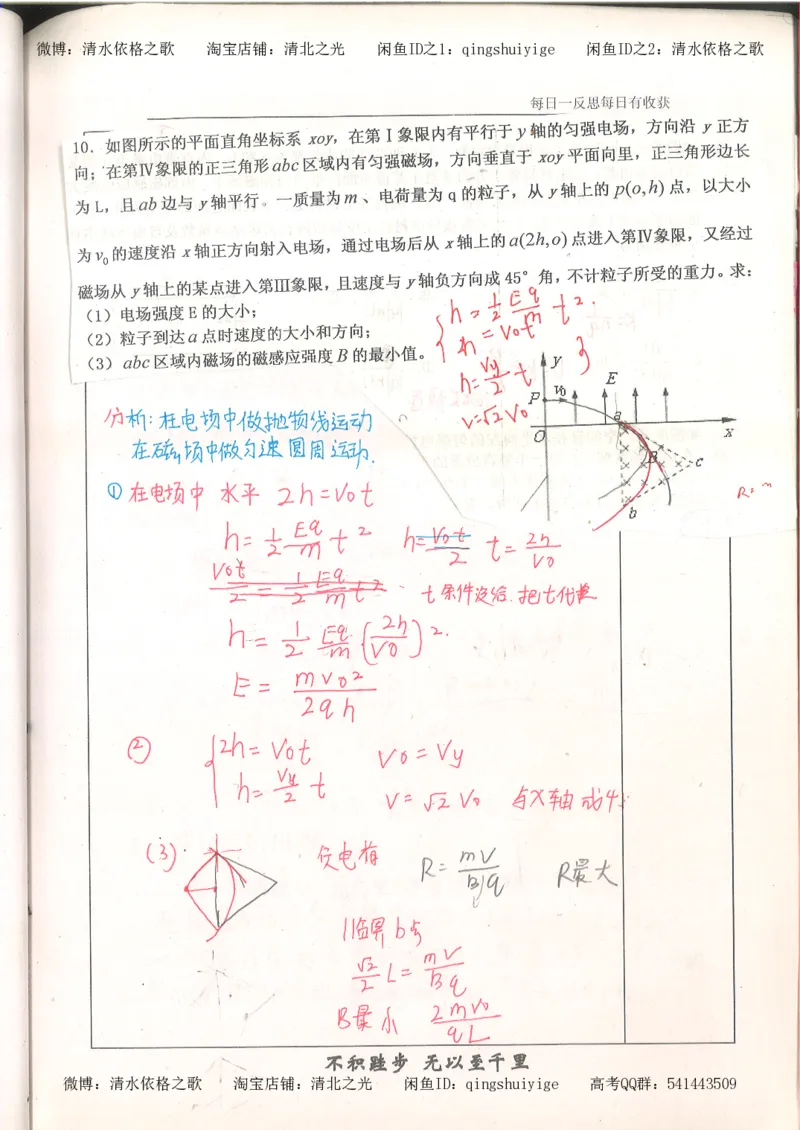 微博：清水依格之歌 淘宝店铺：清北之光 闲鱼ID之1：qingshuiyige 闲鱼ID之2：清水依格之歌
每日一反思每日有收获
10．如图所示的平面直角坐标系 xoy，在第Ⅰ象限内有平行于 y 轴的匀强电场，方向沿 y 正方
向；在第Ⅳ象限的正三角形abc区域内有匀强磁场，方向垂直于 xoy 平面向里，正三角形边长
为L，且ab边与 y轴平行。一质量为m、电荷量为q的粒子，从 y轴上的 p(o,h)点，以大小
为v₀的速度沿 x轴正方向射入电场，通过电场后从 x轴上的a(2h,o)点进入第Ⅳ象限，又经过
磁场从 y轴上的某点进入第Ⅲ象限，且速度与 y轴负方向成45°角，不计粒子所受的重力。求：
（1）电场强度E的大小；
（2）粒子到达a点时速度的大小和方向；
（3）abc区域内磁场的磁感应强度B的最小值。
h=1/2 Eq/m t².
h=v₀t
h=Vy/2 t
v=√2 V₀
y
P V₀ E
a
O x
B
c
b
R=
分析：在电场中做抛物线运动
在磁场中做匀速圆周运动.
①在电场中 水平 2h=V₀t
h=1/2 Eq/m t² h=V₀t/2 t=2h/V₀
V₀t/2=1/2 Eq/m t² t条件没给.把t代掉
h=1/2 Eq/m (2h/V₀)².
E=mv₀²/2qh
② 2h=V₀t V₀=Vy
h=Vy/2 t V=√2 V₀ 与X轴成4
(3) 负电荷 R=mV/Bq R最大
临界b点
√2/2 L=mV/Bq
B最小 2mv₀/qL
不积跬步 无以至千里
微博：清水依格之歌 淘宝店铺：清北之光 闲鱼ID：qingshuiyige 高考QQ群：541443509